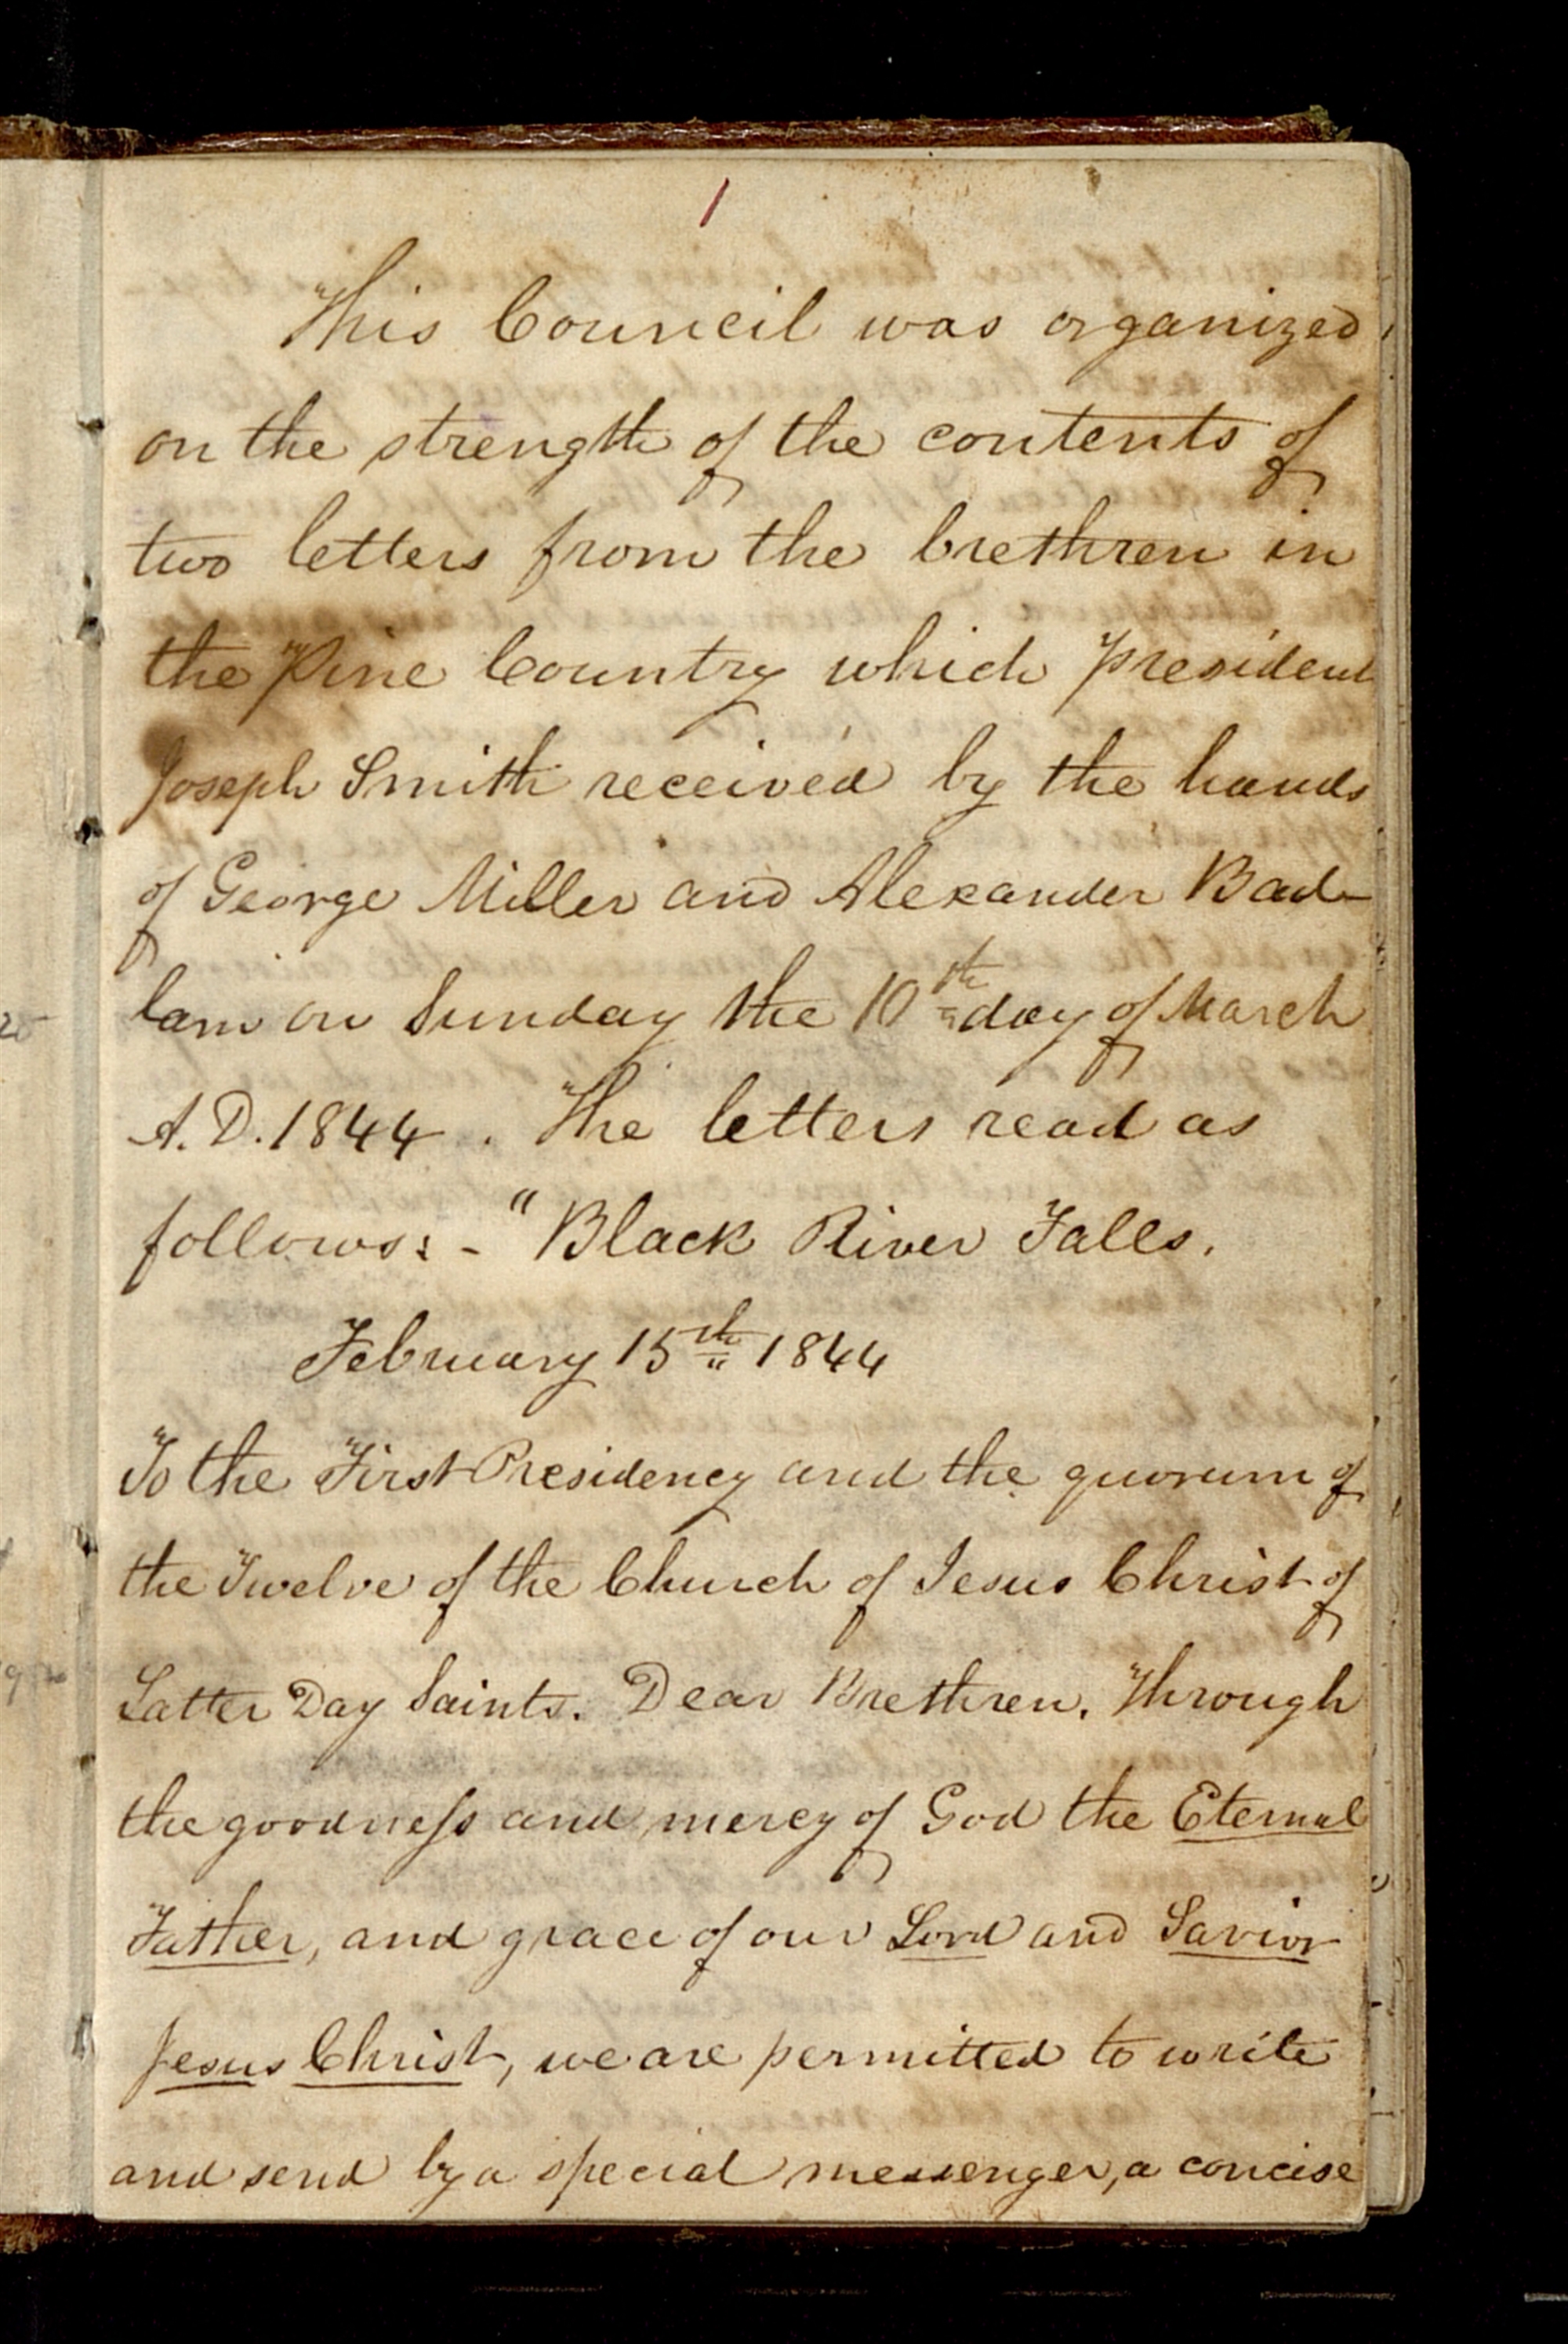 1
This Council was organized
on the strength of the contents of
two letters from the brethren in
the Pine Country which President
Joseph Smith received by the hands
of George Miller and Alexander Bad-
lam on Sunday the 10th day of March
A.D. 1844. The letters read as
follows: - "Black River Falls.
February 15th 1844
To the First Presidency and the quorum of
the Twelve of the Church of Jesus Christ of
Latter Day Saints. Dear Brethren. Through
the goodness and mercy of God the Eternal
Father, and grace of our Lord and Savior
Jesus Christ, we are permitted to write
and send by a special messenger, a concise